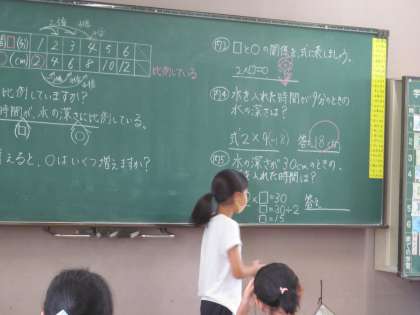 □(分) 1 2 3 4 5 6
○(cm) 2 4 6 8 10 12
2倍
比例している
比例していますか?
時間が、水の深さに比例している。
えると、○はいくつ増えますか?
問3 □と○の関係を式に表しましょう。
2×□=○
問4 水を入れた時間が9分のときの
水の深さは?
式 2×9=18 答え 18cm
問5 水の深さが30cmのとき、
水を入れた時間は?
×□=30
□=30÷2
□=15
答え